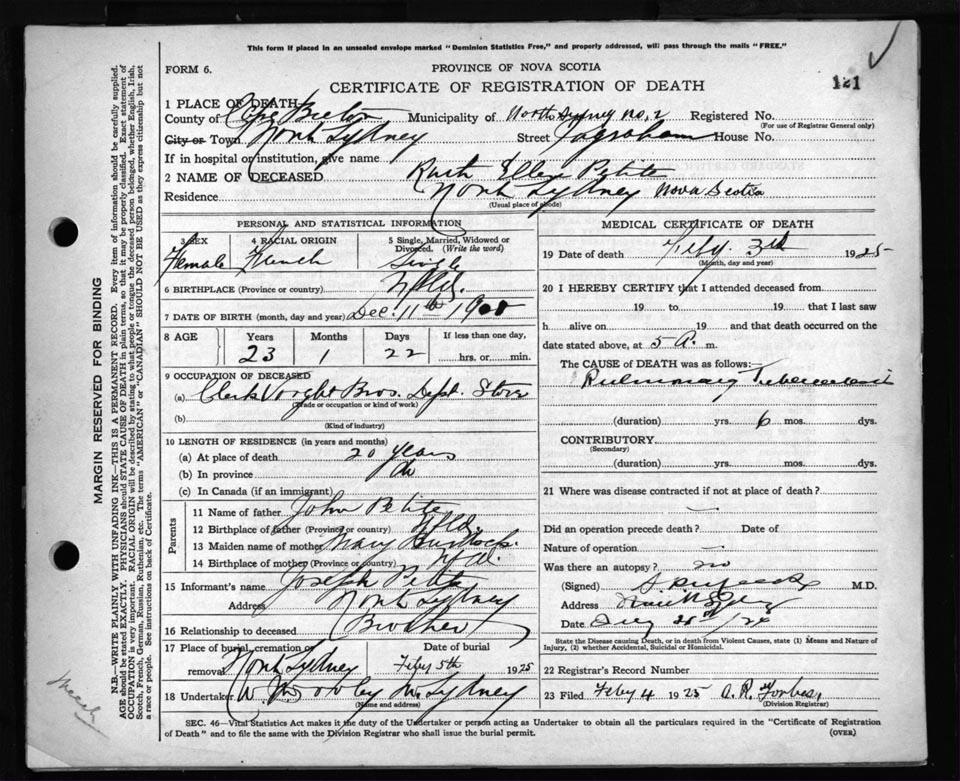 This form if placed in an unsealed envelope marked "Dominion Statistics Free," and properly addressed, will pass through the mails "FREE."
FORM 6.
PROVINCE OF NOVA SCOTIA
CERTIFICATE OF REGISTRATION OF DEATH
121
1 PLACE OF DEATH
County of Cape Breton Municipality of North Sydney No. 2 Registered No.
(For use of Registrar General only)
City or Town North Sydney Street Ingraham House No.
If in hospital or institution, give name
2 NAME OF DECEASED Ruth Ellen Petite
Residence North Sydney Nova Scotia
(Usual place of abode)
PERSONAL AND STATISTICAL INFORMATION
3 SEX 4 RACIAL ORIGIN 5 Single, Married, Widowed or Divorced. (Write the word)
Female French Single
6 BIRTHPLACE (Province or country) Nfld.
7 DATE OF BIRTH (month, day and year) Dec. 11th
8 AGE Years Months Days If less than one day,
23 1 22 hrs. or min.
9 OCCUPATION OF DECEASED
(a) Clerk Vooght Bros. Dept. Store
(Trade or occupation or kind of work)
(b)
(Kind of industry)
10 LENGTH OF RESIDENCE (in years and months)
(a) At place of death 20 years
(b) In province do
(c) In Canada (if an immigrant)
Parents
11 Name of father John Petite
12 Birthplace of father (Province or country) Nfld.
13 Maiden name of mother Mary
14 Birthplace of mother (Province or country)
15 Informant's name Joseph Petite
Address North Sydney
16 Relationship to deceased Brother
17 Place of burial, cremation or removal North Sydney Date of burial Feby 5th 1925
18 Undertaker N. Sydney
(Name and address)
MEDICAL CERTIFICATE OF DEATH
19 Date of death Feby. 3rd 1925
(Month, day and year)
20 I HEREBY CERTIFY that I attended deceased from
19 to 19 that I last saw
h alive on 19 and that death occurred on
date stated above, at 5 A. m.
The CAUSE of DEATH was as follows:
Pulmonary Tuberculosis
(duration) yrs. 6 mos. dys.
CONTRIBUTORY
(Secondary)
(duration) yrs. mos. dys.
21 Where was disease contracted if not at place of death?
Did an operation precede death? Date of
Nature of operation
Was there an autopsy? no
(Signed) M.D.
Address
Date
State the Disease causing Death, or in death from Violent Causes, state (1) Means and Nature of
Injury, (2) whether Accidental, Suicidal or Homicidal.
22 Registrar's Record Number
23 Filed Feby 4 1925 A. R. Forbes
(Division Registrar)
SEC. 46—Vital Statistics Act makes it the duty of the Undertaker or person acting as Undertaker to obtain all the particulars required in the "Certificate of Registration
of Death" and to file the same with the Division Registrar who shall issue the burial permit.
(OVER)
MARGIN RESERVED FOR BINDING
N.B.—WRITE PLAINLY WITH UNFADING INK—THIS IS A PERMANENT RECORD. Every item of information should be carefully supplied.
AGE should be stated EXACTLY. PHYSICIANS should STATE CAUSE OF DEATH in plain terms, so that it may be properly classified. Exact statement of
OCCUPATION is very important. RACIAL ORIGIN will be described by stating to what people or tongue the deceased person belonged, whether English, Irish,
Scotch, French, German, Russian, Ruthenian, etc. The terms "AMERICAN" or "CANADIAN" SHOULD NOT BE USED as they express citizenship but not
a race or people. See instructions on back of Certificate.